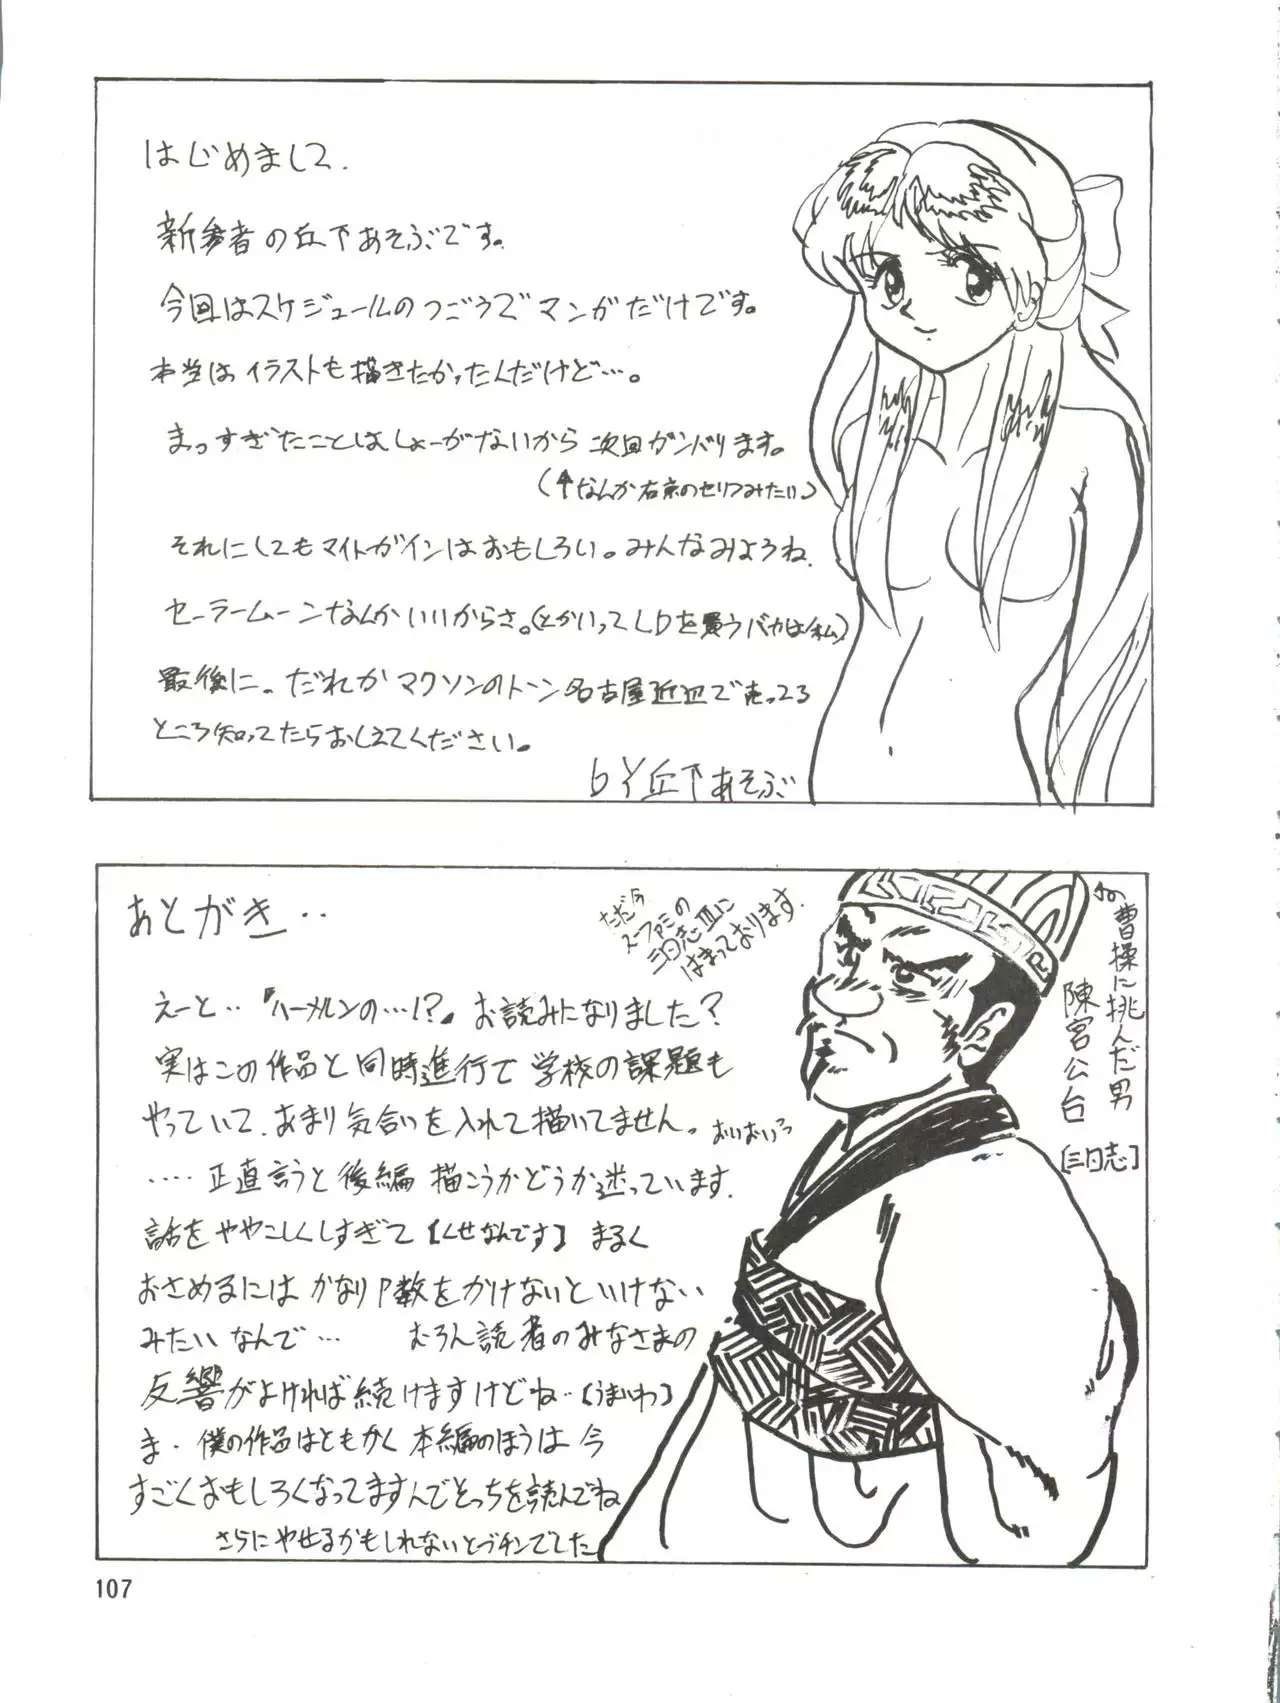 はじめまして.
新参者の丘下あそぶです。
今回はスケジュールのつごうでマンガだけです。
本当はイラストも描きたかったんだけど…。
まっすぎたことはしょーがないから次回ガンバります。
(↑なんか右京のセリフみたい)
それにしてもマイトガインはおもしろい。みんなみようね.
セーラームーンなんかいいからさ。(とかいってLDを買うバカは私)
最後に。だれかマクソンのトーン名古屋近辺で売ってる
ところ知ってたらおしえてください。
bY丘下あそぶ
あとがき‥
ただ今
スーファミの
三国志Ⅲに
はまっております.
あの曹操に挑んだ男
陳宮公台
[三国志]
えーと‥『ハーメルンの…!?』お読みになりました?
実はこの作品と同時進行で学校の課題も
やっていて、あまり気合いを入れて描いてません。おいおいっ
‥‥正直言うと後編描こうかどうか迷っています.
話をややこしくしすぎて【くせなんです】まるく
おさめるにはかなりP数をかけないといけない
みたいなんで… むろん読者のみなさまの
反響がよければ続けますけどね‥【うまいわ】
ま・僕の作品はともかく本編のほうは今
すごくおもしろくなってますんでそっちを読んでね
さらにやせるかもしれないとブチンでした
107